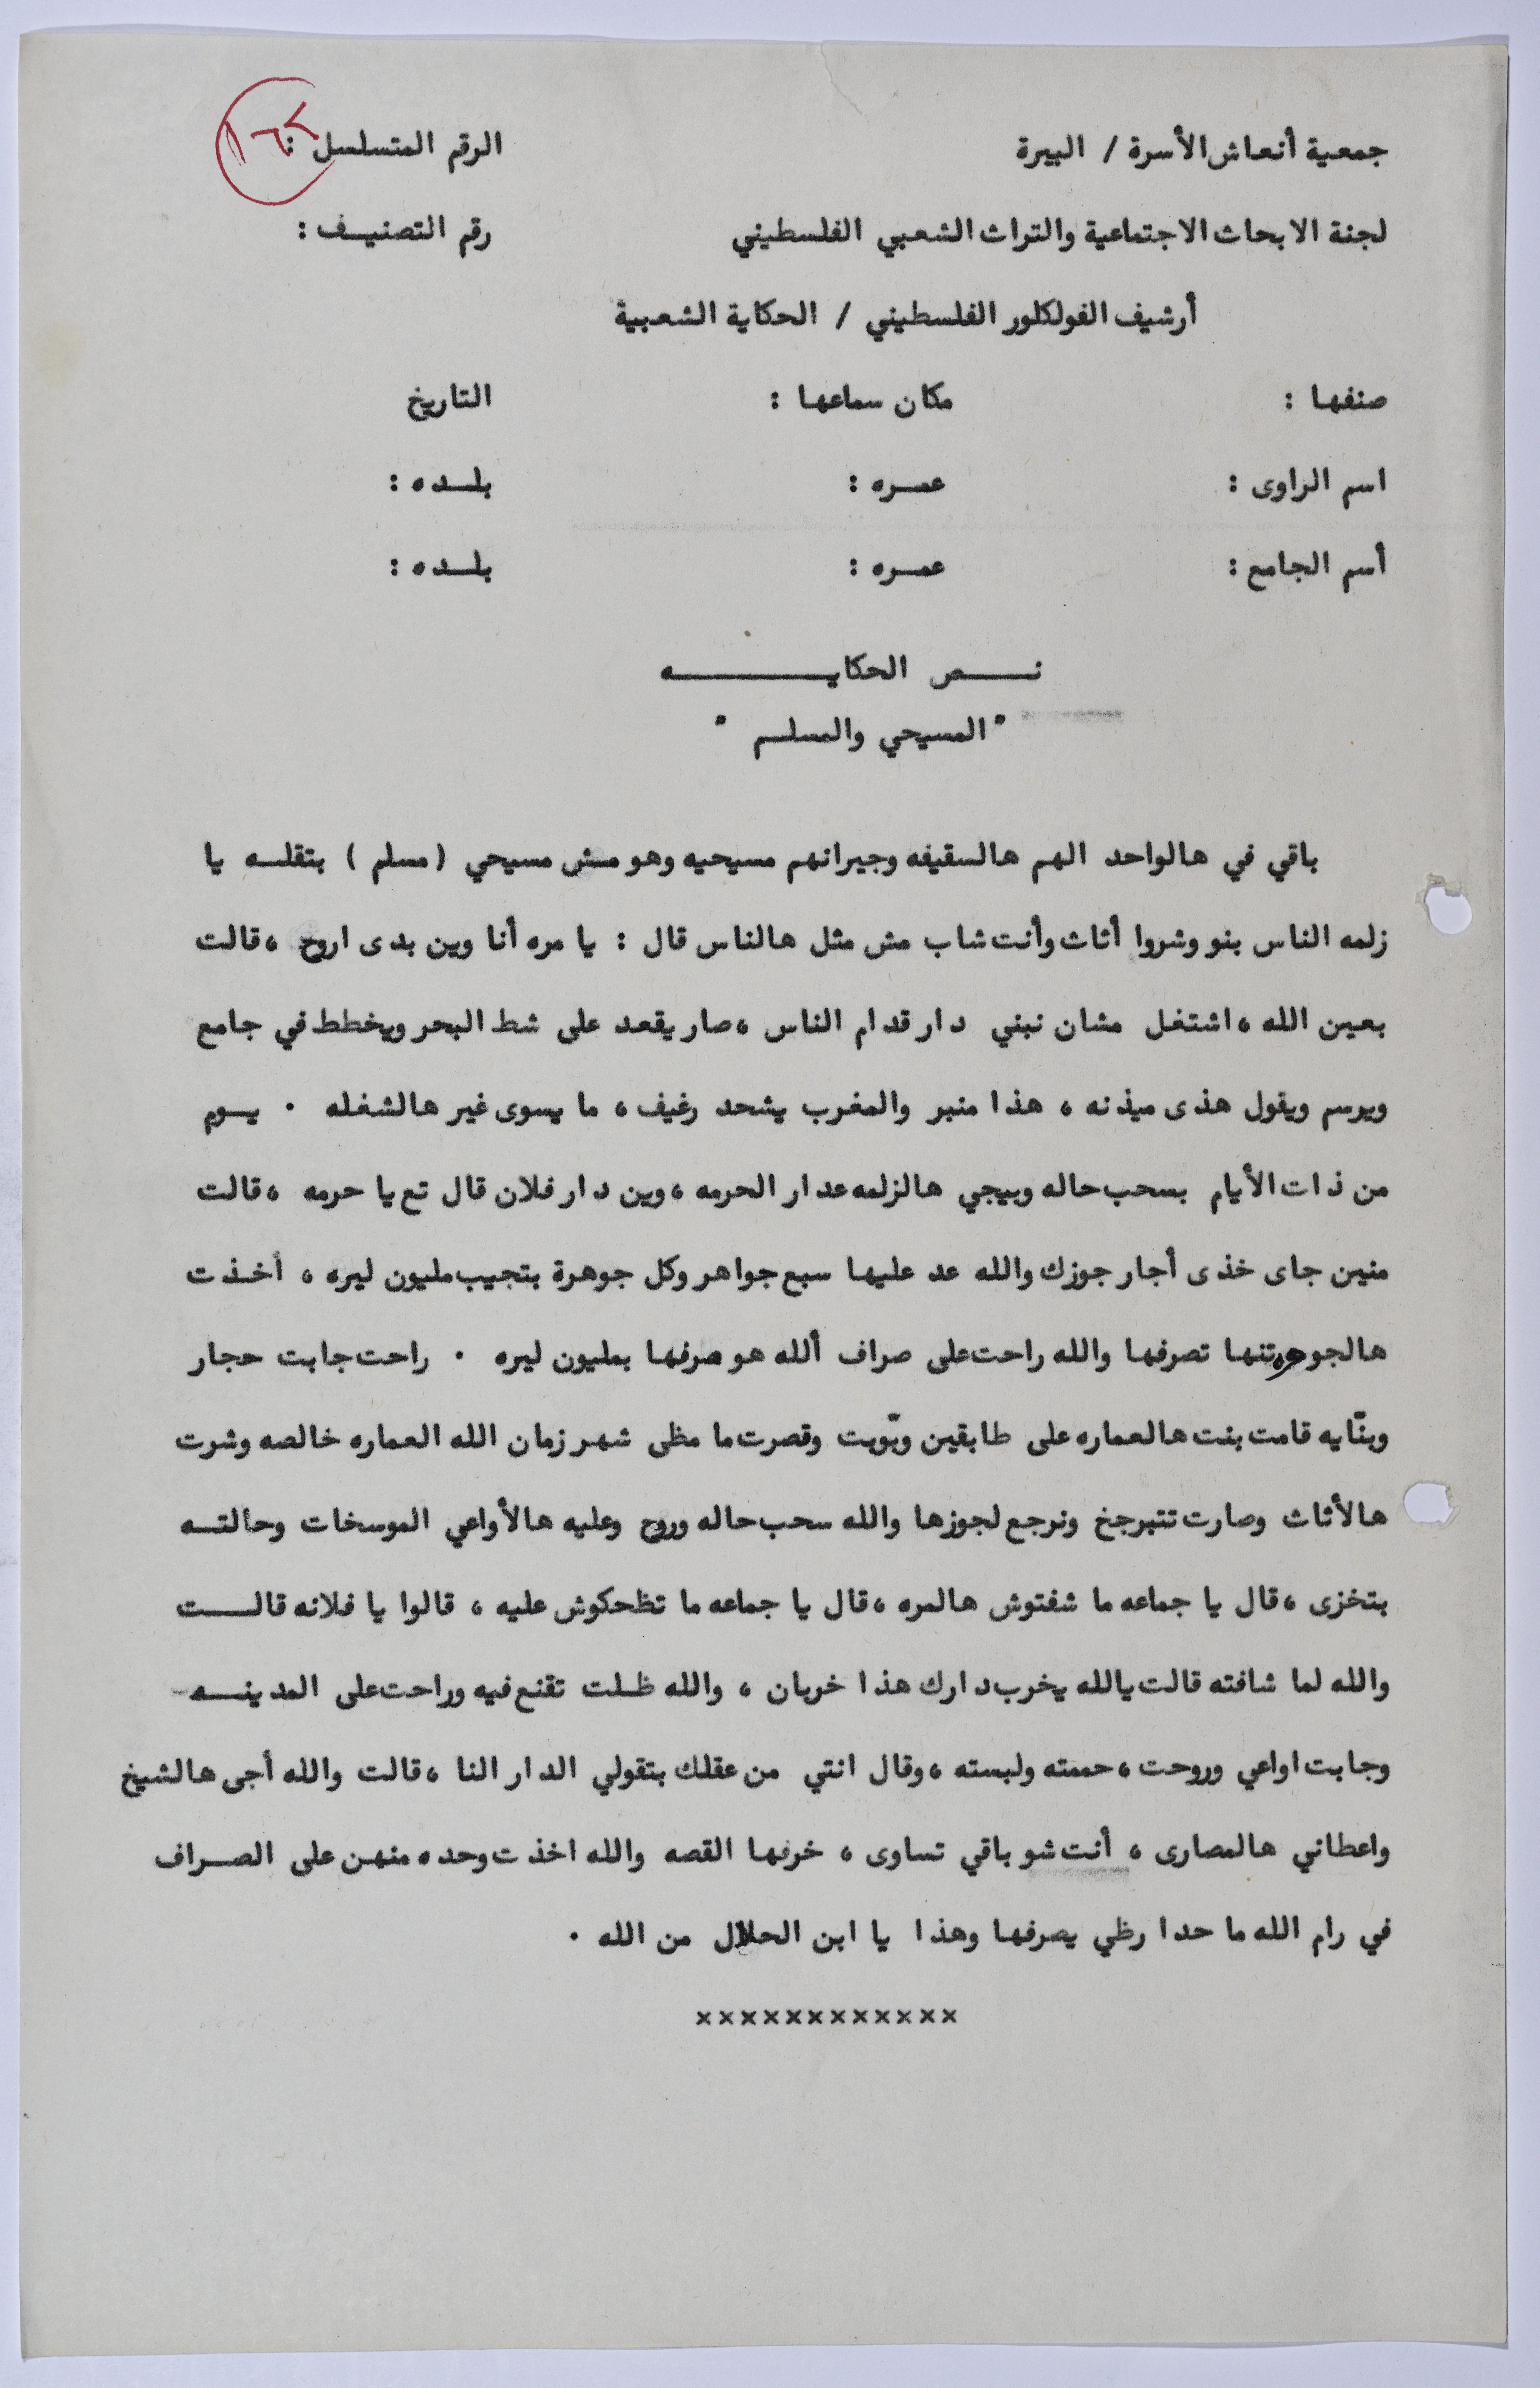 جمعية أنعاش الأسرة / البيرة
الرقم المتسلسل :
لجنة الابحاث الاجتماعية والتراث الشعبي الفلسطيني
رقم التصنيــف :
أرشيف الفولكلور الفلسطيني / الحكاية الشعبية
صنفها : مكان سماعها : التاريخ
اسم الراوى : عمــره : بلــده :
أسم الجامع : عمــره : بلــده :
نــــص الحكايــــــــــه
" المسيحي والمسلــم "
باقي في هالواحد الهم هالسقيفه وجيرانهم مسيحيه وهو مش مسيحي ( مسلم ) بتقلــه يا
زلمه الناس بنو وشروا أثاث وأنت شاب مش مثل هالناس قال : يا مره أنا وين بدى اروح ، قالت
بعين الله ، اشتغل مشان نبني دار قدام الناس ، صار يقعد على شط البحر ويخطط في جامع
ويرسم ويقول هذى ميذنه ، هذا منبر والمغرب يشحد رغيف ، ما يسوى غير هالشغله . يــوم
من ذات الأيام بسحب حاله وبيجي هالزلمه عدار الحرمه ، وين دار فلان قال تع يا حرمه ، قالت
منين جاى خذى أجار جوزك والله عد عليها سبع جواهر وكل جوهرة بتجيب مليون ليره ، أخذت
هالجوهرتنها تصرفها والله راحت على صراف ألله هو صرفها بمليون ليره . راحت جابت حجار
وبنّايه قامت بنت هالعماره على طابقين وبّوبت وقصرت ما مظى شهر زمان الله العماره خالصه وشرت
هالأثاث وصارت تتبرجخ ونرجع لجوزها والله سحب حاله وروح وعليه هالأواعي الموسخات وحالتــه
بتخزى ، قال يا جماعه ما شفتوش هالمره ، قال يا جماعه ما تظحكوش عليه ، قالوا يا فلانه قالـــت
والله لما شافته قالت يالله يخرب دارك هذا خربان ، والله ظـلت تقنع فيه وراحت على المدينــه
وجابت اواعي وروحت ، حممته ولبسته ، وقال انتي من عقلك بتقولي الدار النا ، قالت والله أجى هالشيخ
واعطاني هالمصارى ، أنت شو باقي تساوى ، خرفها القصه والله اخذت وحده منهن على الصــراف
في رام الله ما حدا رظي يصرفها وهذا يا ابن الحلال من الله .
××××××××××××